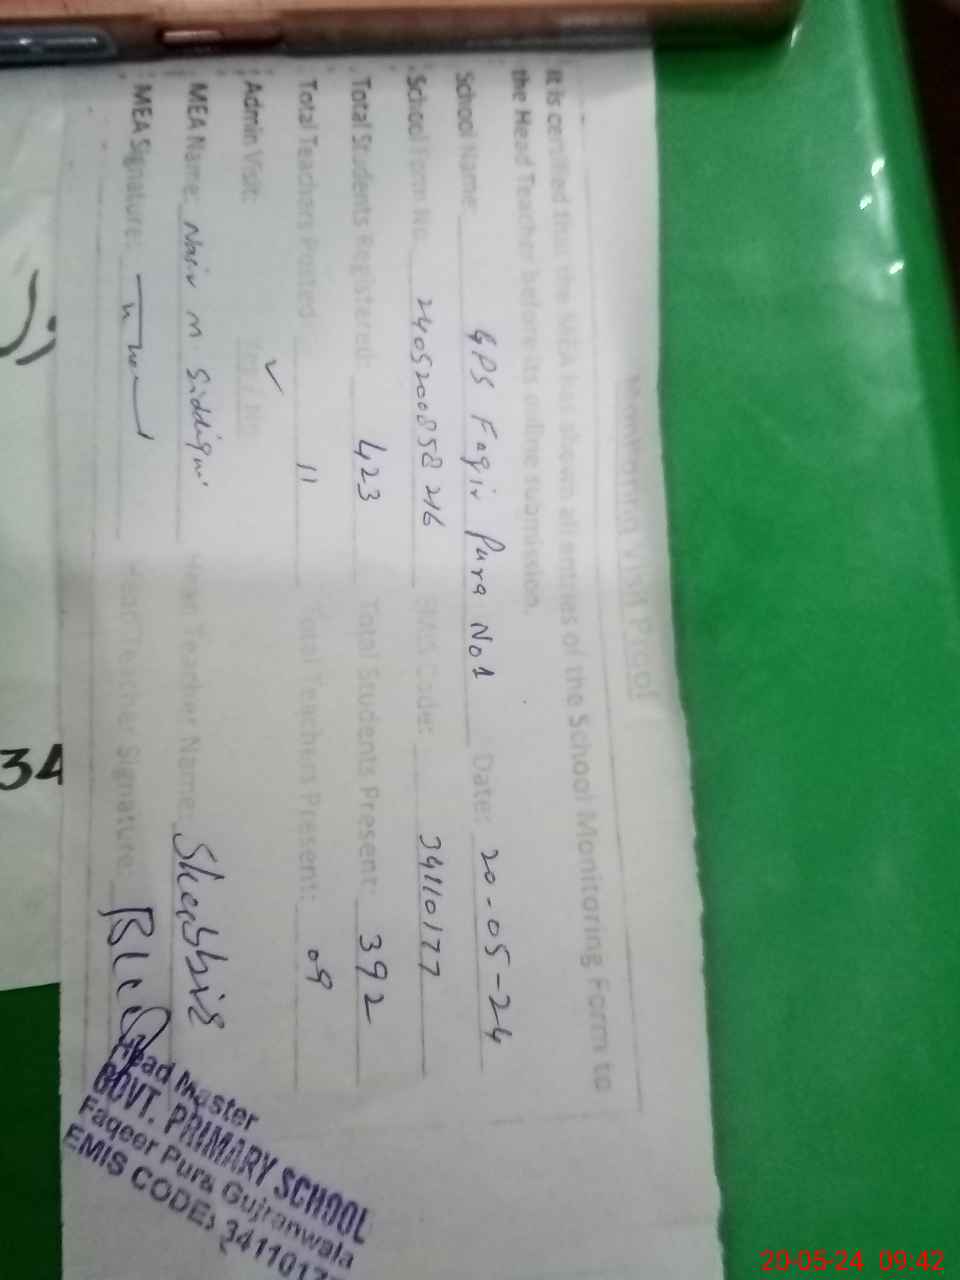 Monitoring Visit Proof
It is certified that the MEA has shown all entries of the School Monitoring Form to
the Head Teacher before its online submission.
School Name: GPS Faqir Pura No1 Date: 20-05-24
School Form No: 2405200858216 EMIS Code: 34110177
Total Students Registered: 423 Total Students Present: 392
Total Teachers Posted: 11 Total Teachers Present: 09
Admin Visit: Yes / No ✓
MEA Name: Nasir M Siddiqui Head Teacher Name: Shabbir
MEA Signature: Head Teacher Signature:
Head Master
GOVT. PRIMARY SCHOOL
Faqeer Pura Gujranwala
EMIS CODE: 3411017
34
20-05-24 09:42